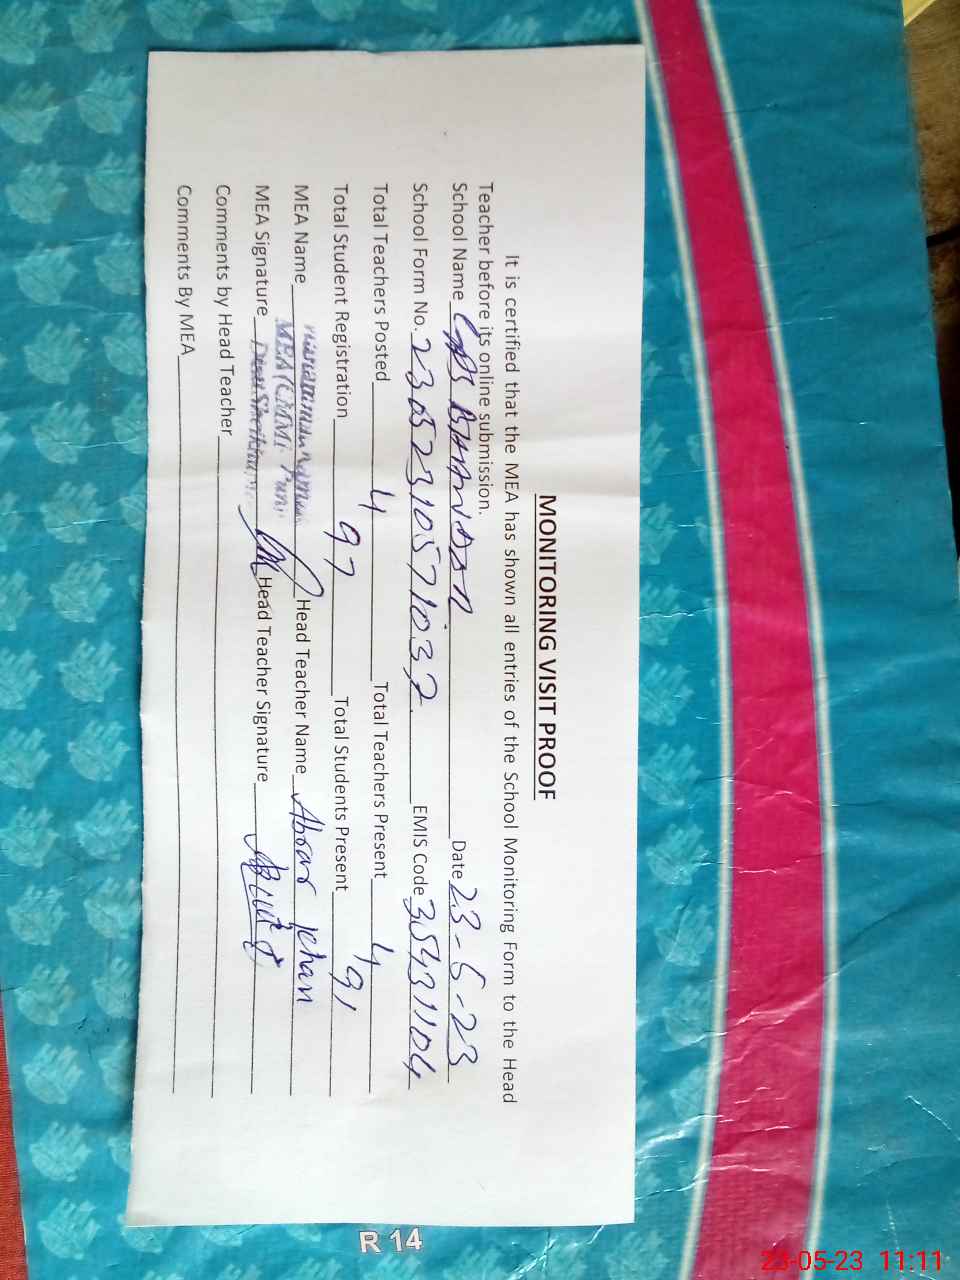 MONITORING VISIT PROOF
It is certified that the MEA has shown all entries of the School Monitoring Form to the Head
Teacher before its online submission.
School Name GPS BHANDOR Date 23-5-23
School Form No. 23052310571037. EMIS Code 35431104
Total Teachers Posted 4 Total Teachers Present 4
Total Student Registration 97 Total Students Present 91
MEA Name Head Teacher Name Absar jehan
MEA (CMM)
MEA Signature Head Teacher Signature
Comments by Head Teacher
Comments By MEA
R 14
23-05-23 11:11